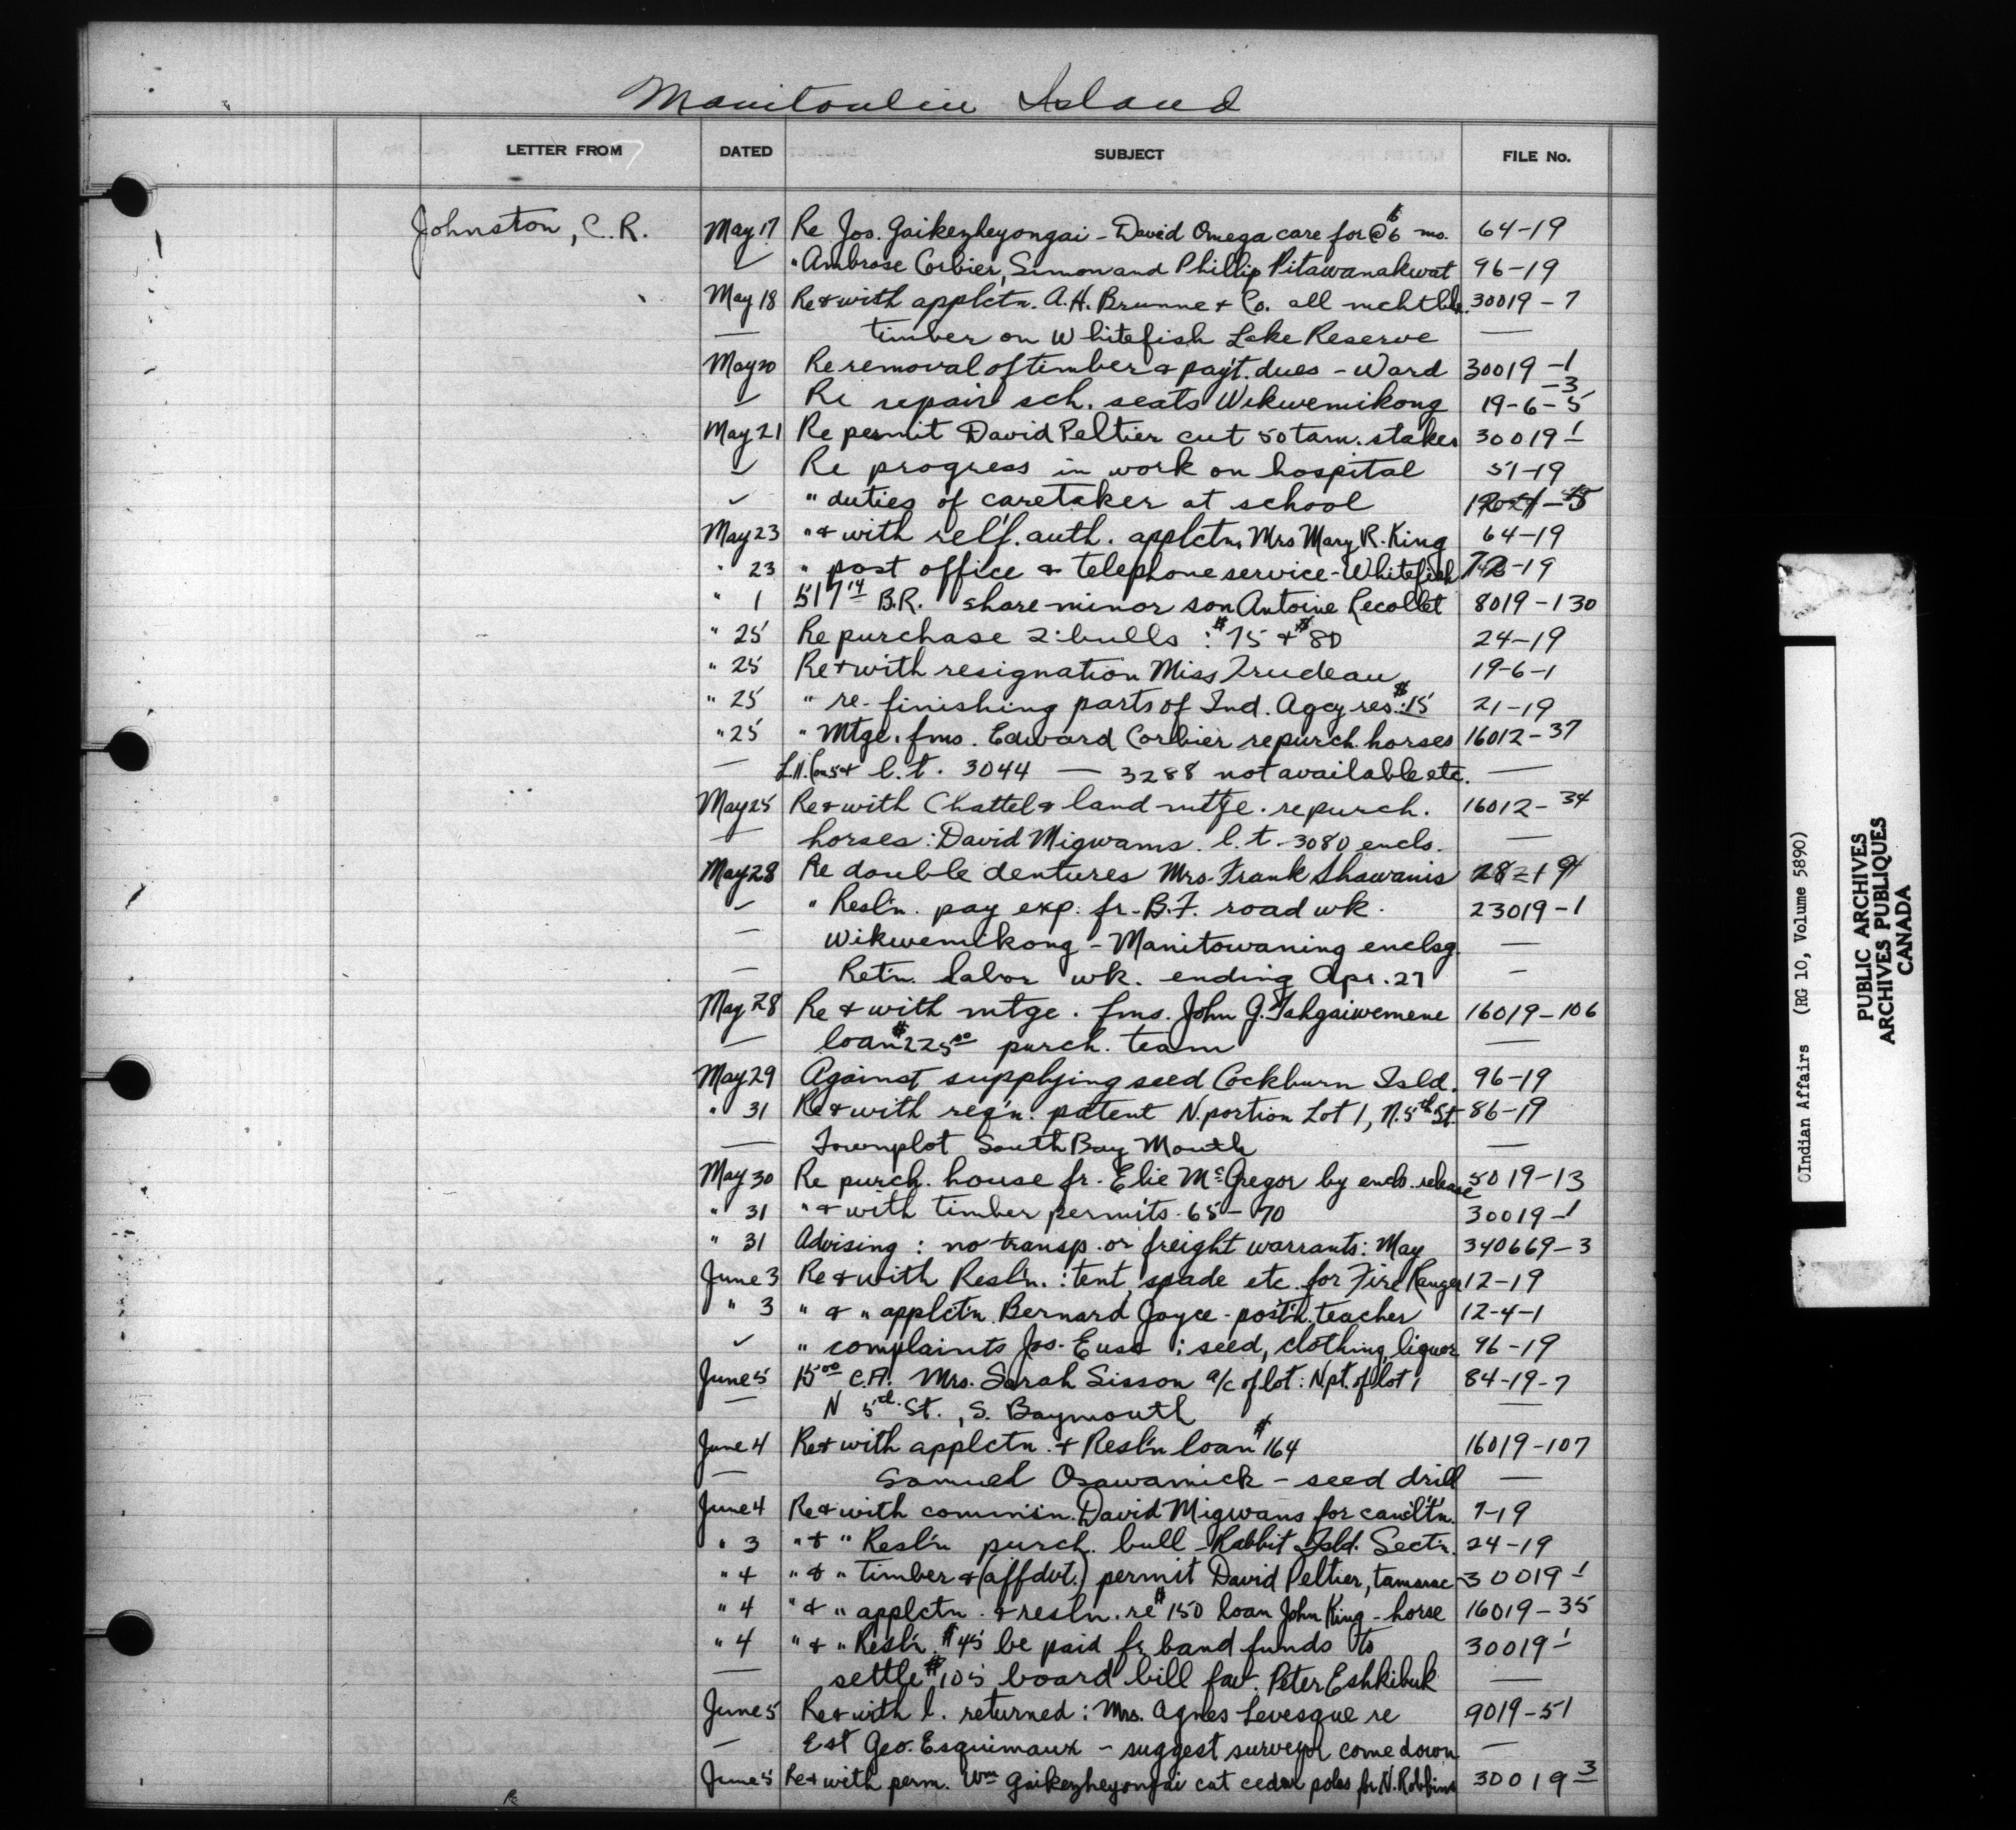 Manitoulin Island
LETTER FROM DATED SUBJECT FILE No.
Johnston, C.R. May 17 Re Jos. Gaikezheyongai - David Omega care for @ $6 mo. 64-19
✓ " Ambrose Corbier, Simon and Phillip Pitawanakwat 96-19
May 18 Re & with applctn. A.H. Brunne & Co. all mchtble. 30019-7
— timber on Whitefish Lake Reserve —
May 20 Re removal of timber & pay't. dues - Ward 30019-1 -3
✓ Re repair sch. seats Wikwemikong 19-6-5
May 21 Re permit David Peltier cut 50 tam. stakes 30019-1
✓ Re progress in work on hospital 51-19
✓ " duties of caretaker at school
May 23 " & with relf. auth. applctn. Mrs Mary R. King 64-19
" 23 " post office & telephone service - Whitefish
" 1 517 14 B.R. share minor son Antoine Recollet 8019-130
" 25 Re purchase 2 bulls : $75 & $80 24-19
" 25 Re & with resignation Miss Trudeau 19-6-1
" 25 " re-finishing parts of Ind. Agcy res. : $15 21-19
" 25 " Mtge. fms. Edward Corbier re purch. horses 16012-37
— l.t. 3044 — 3288 not available etc. —
May 25 Re & with Chattel & land mtge. re purch. 16012-34
— horses : David Migwams. l.t. 3080 encls. —
May 28 Re double dentures Mrs. Frank Shawanis
✓ " Resl'n. pay exp. fr. B.F. road wk. 23019-1
— Wikwemikong - Manitowaning enclsg. —
— Ret'n. labor wk. ending Apr. 27 —
May 28 Re & with mtge. fms. John G. Tahgaiwemene 16019-106
— loan $225 00 purch. team —
May 29 Against supplying seed Cockburn Isld. 96-19
" 31 Re & with reg'n. patent N. portion Lot 1, N. 5th St. 86-19
— Townplot South Bay Mouth —
May 30 Re purch. house fr. Elie McGregor by encls. release 5019-13
" 31 " & with timber permits 65-70 30019-1
" 31 Advising : no transp. or freight warrants : May 340669-3
June 3 Re & with Resl'n. : tent, spade etc. for Fire Ranger 12-19
" 3 " & " applct'n. Bernard Joyce - post'n. teacher 12-4-1
✓ " complaints Jos. Eusa : seed, clothing, liquor 96-19
June 5 15 00 C.A. Mrs. Sarah Sisson a/c of lot : N pt. of lot 1 84-19-7
— N 5rd. St., S. Baymouth —
June 4 Re & with applctn. & Resl'n loan $164 16019-107
— Samuel Osawamick - seed drill —
June 4 Re & with comm'sn. David Migwans for 7-19
" 3 " & " Resl'n purch. bull - Rabbit Isld. Sect'n. 24-19
" 4 " & " timber & (affdvt.) permit David Peltier, tamarac 30019-1
" 4 " & " applctn. & resln. re $150 loan John King - horse 16019-35
" 4 " & " Resl'n. $45 be paid fr. band funds to 30019-1
— settle $105 board bill fav. Peter Eshkibuk —
June 5 Re & with l. returned : Mrs. Agnes Levesque re 9019-51
— Est Geo. Esquimaux - suggest surveyor come down —
June 5 Re & with perm. Wm Gaikezheyongai cut cedar poles for N. Robbins 30019-3
Indian Affairs (RG 10, Volume 5890)
PUBLIC ARCHIVES
ARCHIVES PUBLIQUES
CANADA